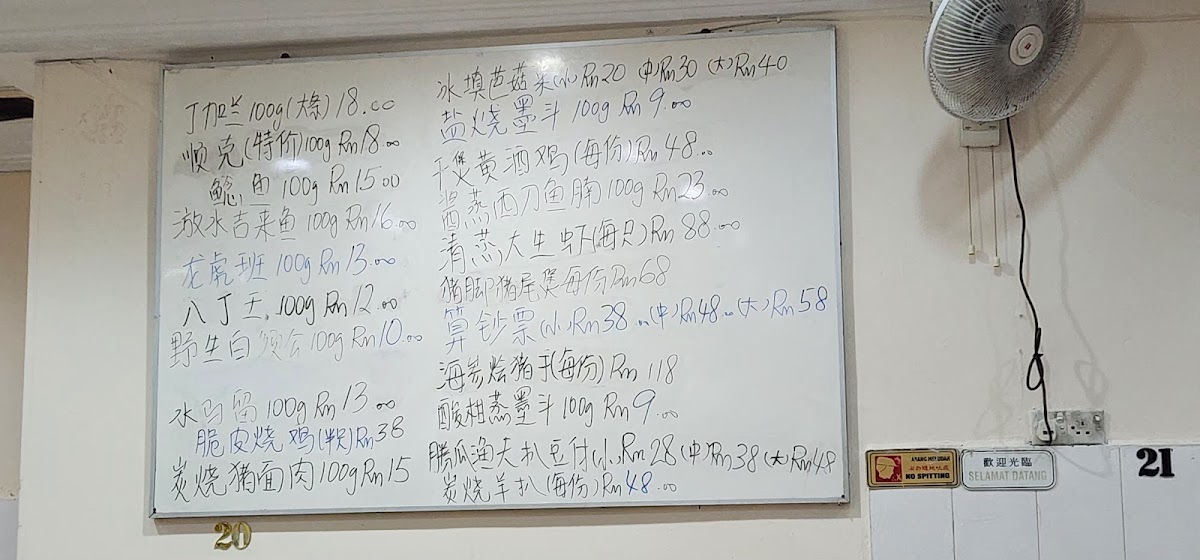 丁加兰 100g (大條) 18.00
順克 (特价) 100g Rm18.00
鯰鱼 100g Rm15.00
激水吉来鱼 100g Rm16.00
龙虎班 100g Rm13.00
八丁王 100g Rm12.00
野生白须公 100g Rm10.00
水马留 100g Rm13.00
脆皮烧鸡(半只)Rm38
炭烧猪面肉 100g Rm15
冰填芭菇来(小)Rm20 (中)Rm30 (大)Rm40
盐烧墨斗 100g Rm9.00
干煲黄酒鸡(每份)Rm48.00
酱蒸西刀鱼腩 100g Rm23.00
清蒸大生虾(每只)Rm88.00
猪脚猪尾煲每份Rm68
算钞票(小)Rm38.00 (中)Rm48.00 (大)Rm58
海参烩猪手(每份)Rm118
酸柑蒸墨斗 100g Rm9.00
勝瓜渔夫扒豆付(小)Rm28 (中)Rm38 (大)Rm48
炭烧羊扒(每份)Rm48.00
20
NO SPITTING
歡迎光臨
SELAMAT DATANG
21